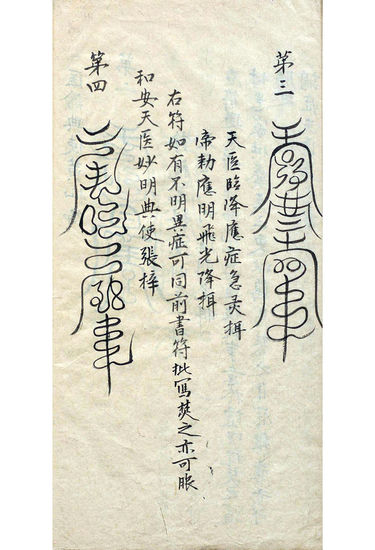 第三
天医臨降應症急灵揖
帝勅應明飛光降揖
右符如有不明異症可同前書符批寫焚之亦可服
和安天医妙明典使張梓
第四